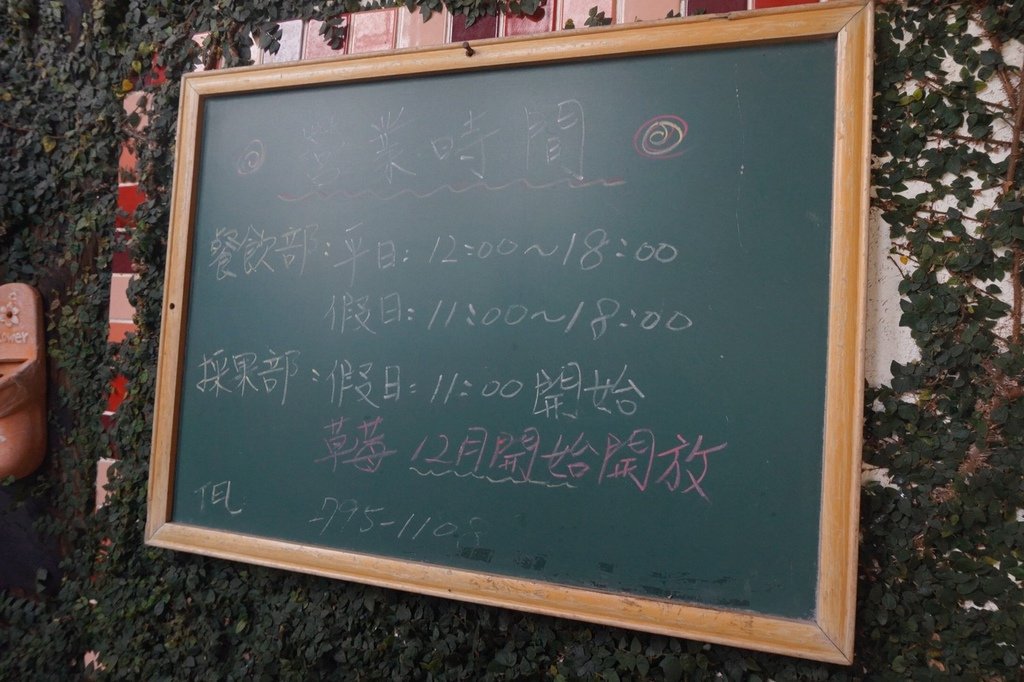 營業時間
餐飲部:平日:12:00~18:00
假日:11:00~18:00
採果部:假日:11:00開始
草莓12月開始開放
795-1108
lower